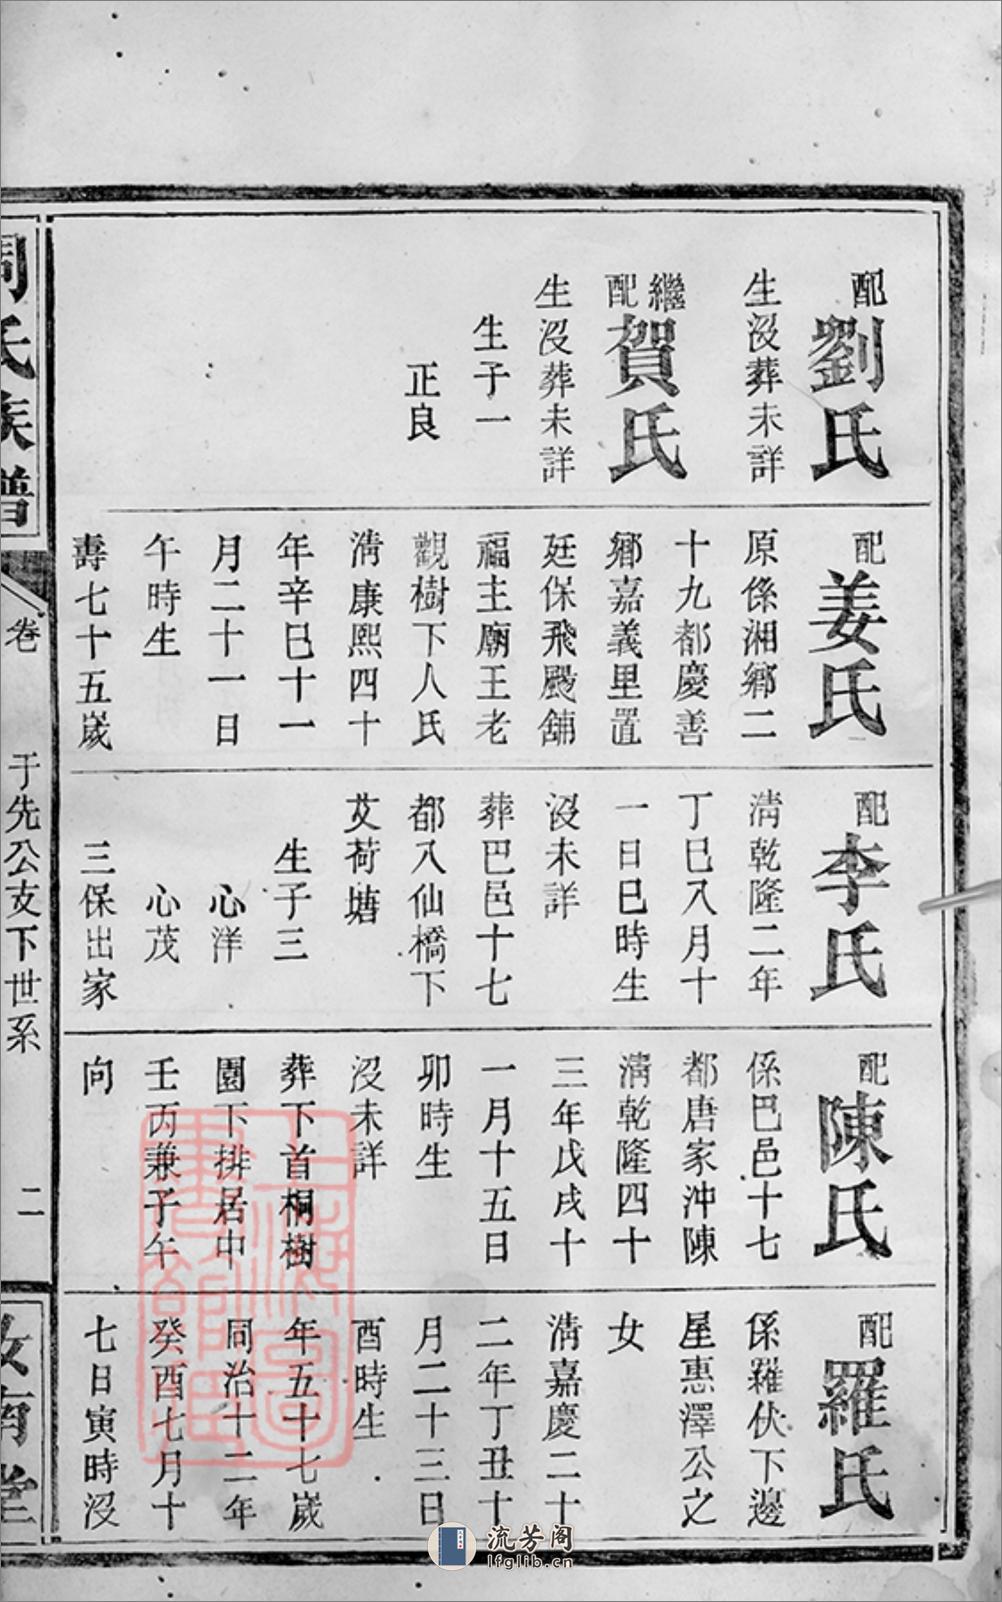 配劉氏
生没葬未詳
繼配賀氏
生没葬未詳
生子一
正良
配姜氏
原係湘鄉二
十九都慶善
鄉嘉義里置
廷保飛颺舖
福主廟王老
觀樹下人氏
清康熙四十
年辛巳十一
月二十一日
午時生
壽七十五歲
配李氏
清乾隆二年
丁巳八月十
一日巳時生
没未詳
葬巴邑十七
都八仙橋下
艾荷塘
生子三
心洋
心茂
三保出家
配陳氏
係巴邑十七
都唐家沖陳
清乾隆四十
三年戊戌十
一月十五日
卯時生
没未詳
葬下首桐樹
園下排居中
壬丙兼子午
向
配羅氏
係羅伏下邊
屋惠澤公之
女
清嘉慶二十
二年丁丑十
月二十三日
酉時生
年五十七歲
同治十二年
癸酉七月十
七日寅時没
周氏族譜
卷
于先公支下世系
二
汝南堂
上海圖書館藏
流芳阁
lfglib.cn